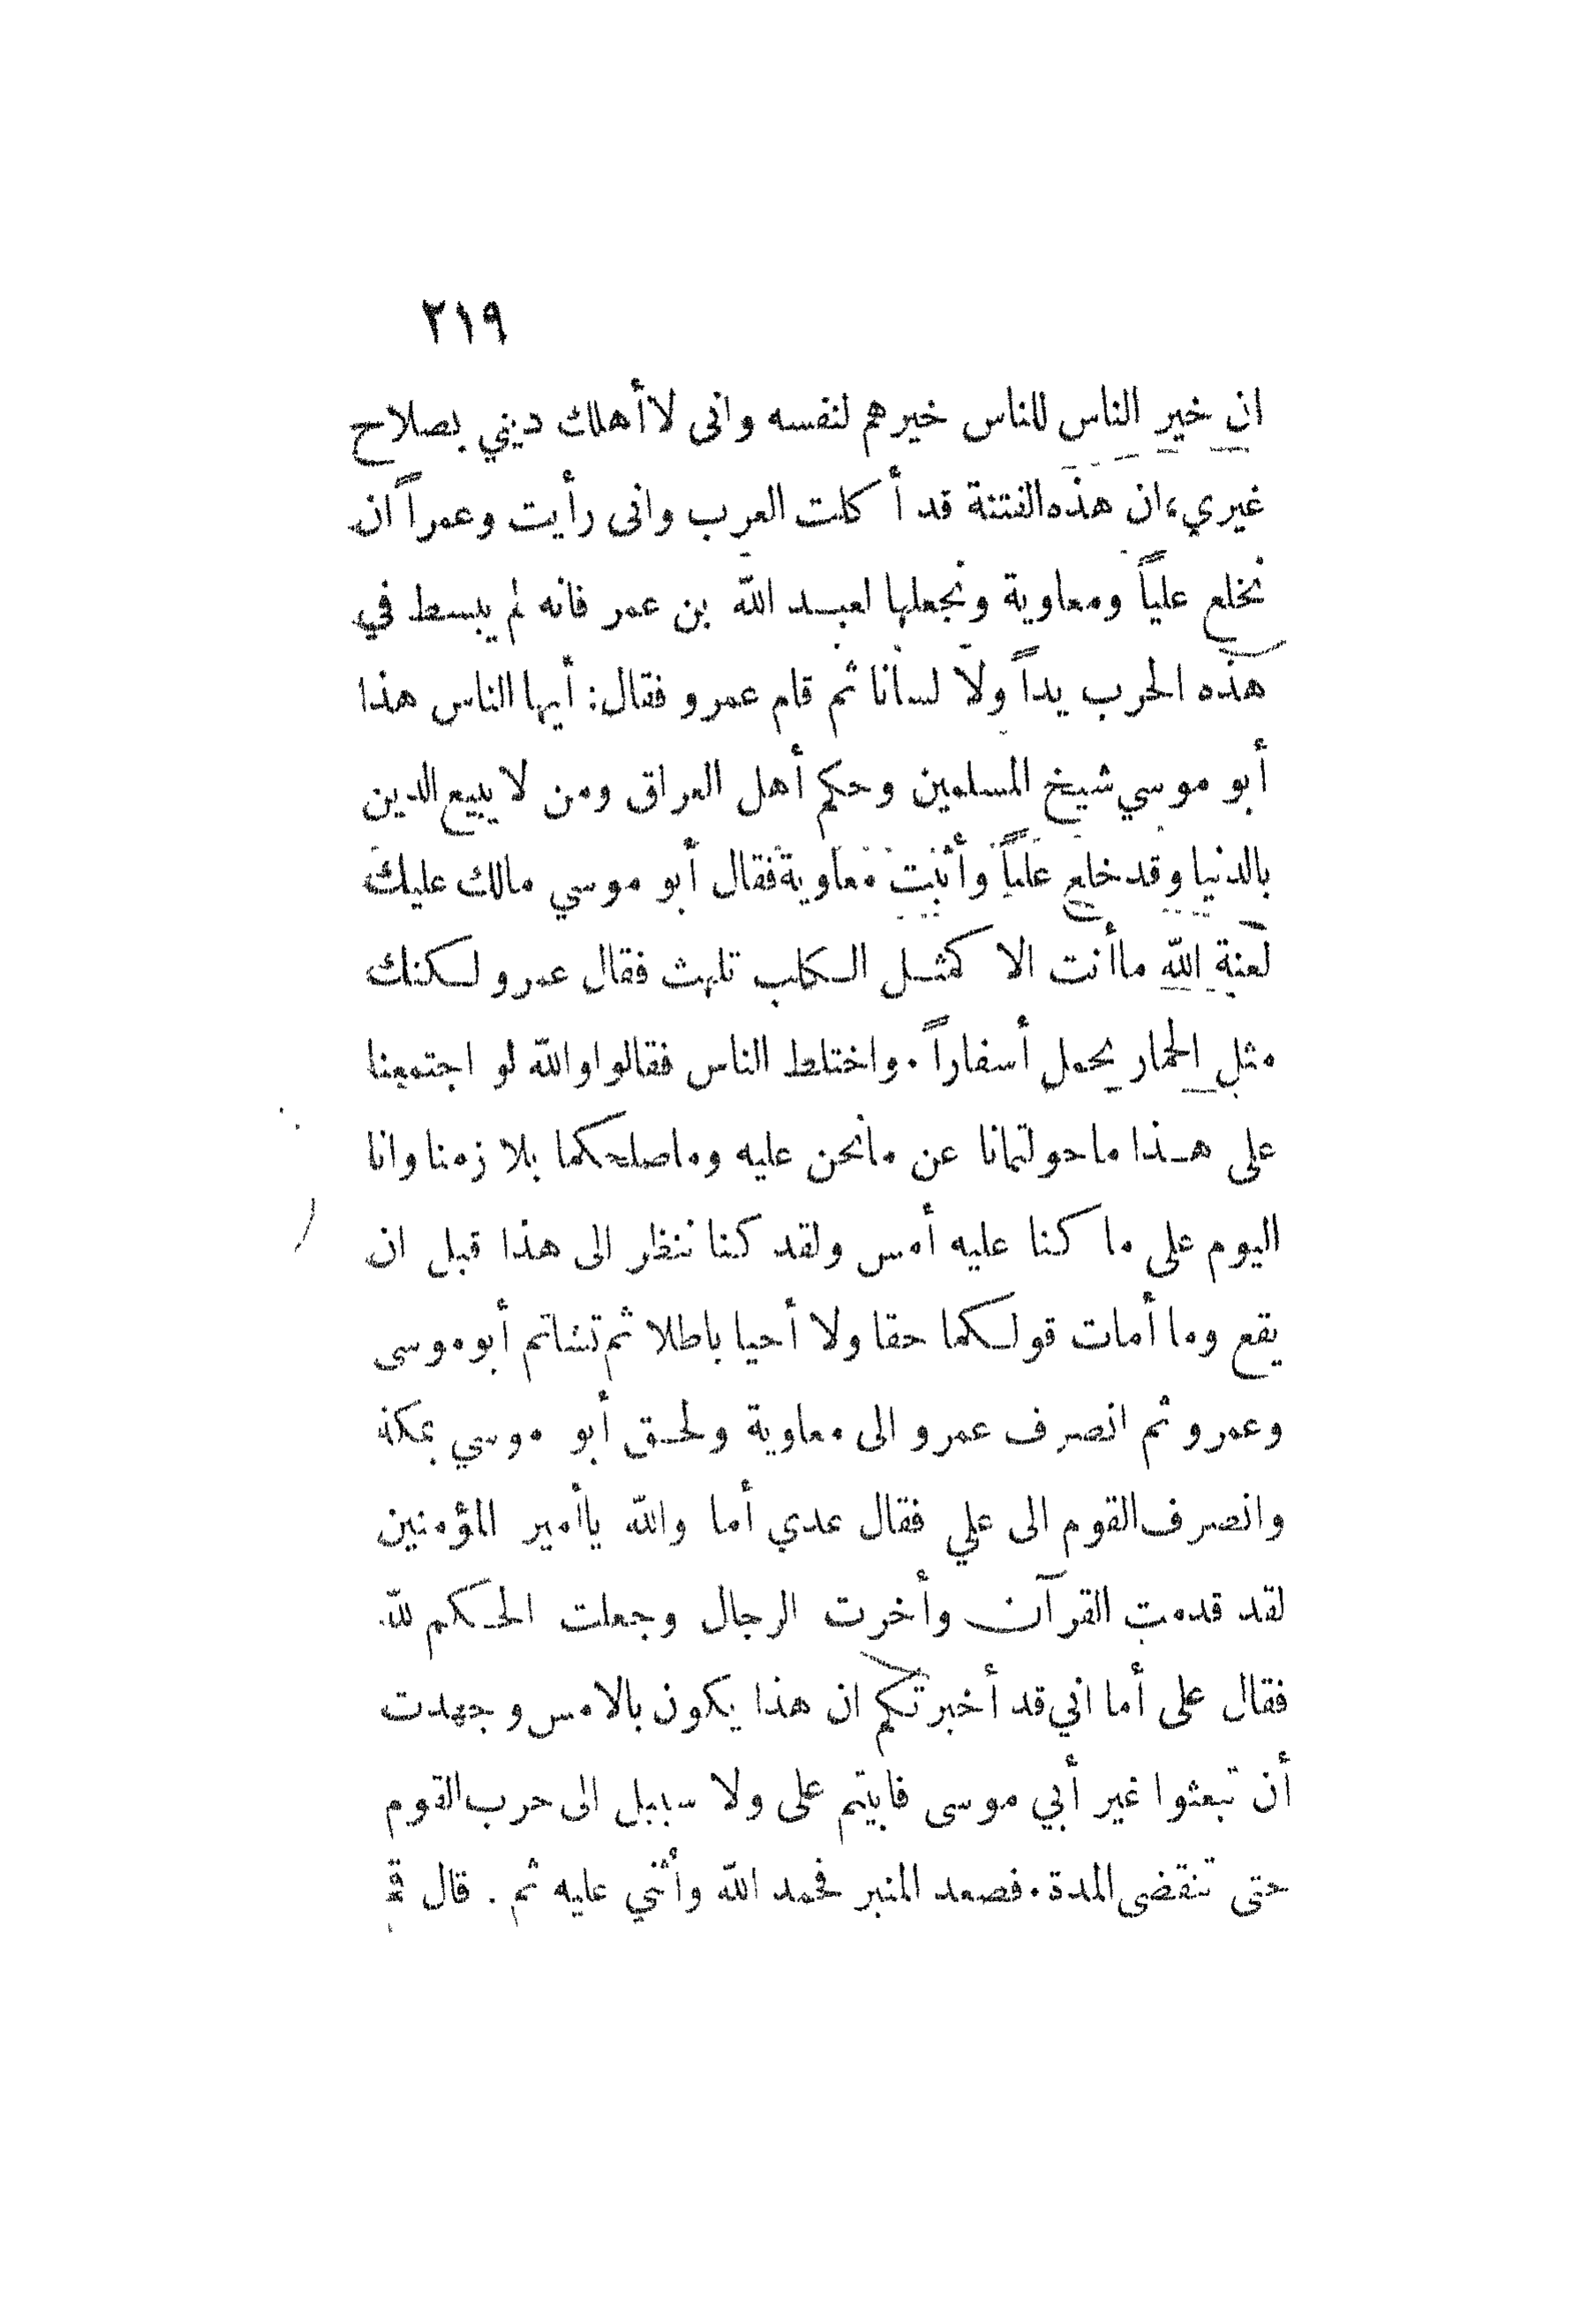 ٢١٩
ان خير الناس للناس خيرهم لنفسه وانى لا أهلك ديني بصلاح
غيري، ان هذه الفتنة قد أكلت العرب وانى رأيت وعمراً ان
نخلع علياً ومعاوية ونجعلها لعبد الله بن عمر فانه لم يبسط في
هذه الحرب يداً ولا لسانا ثم قام عمرو فقال: أيها الناس هذا
أبو موسي شيخ المسلمين وحكم أهل العراق ومن لا يبيع الدين
بالدنيا وقد خلع علياً وأثبت معاوية فقال أبو موسي مالك عليك
لعنة الله ماأنت الا كمثل الكلب تلهث فقال عمرو لكنك
مثل الحمار يحمل أسفاراً. واختلط الناس فقالوا والله لو اجتمعنا
على هذا ماحولتمانا عن مانحن عليه وماصلحكما بلازمنا وانا
اليوم على ما كنا عليه أمس ولقد كنا ننظر الى هذا قبل ان
يقع وما أمات قولكما حقا ولا أحيا باطلا ثم تشاتم أبو موسى
وعمرو ثم انصرف عمرو الى معاوية ولحق أبو موسي بمكة
وانصرف القوم الى علي فقال عدي أما والله ياأمير المؤمنين
لقد قدمت القرآن وأخرت الرجال وجعلت الحكم لله
فقال على أما اني قد أخبرتكم ان هذا يكون بالامس وجهدت
أن تبعثوا غير أبي موسى فابيتم على ولا سبيل الى حرب القوم
حتى تنقضى المدة. فصعد المنبر فحمد الله وأثني عليه ثم. قال قم